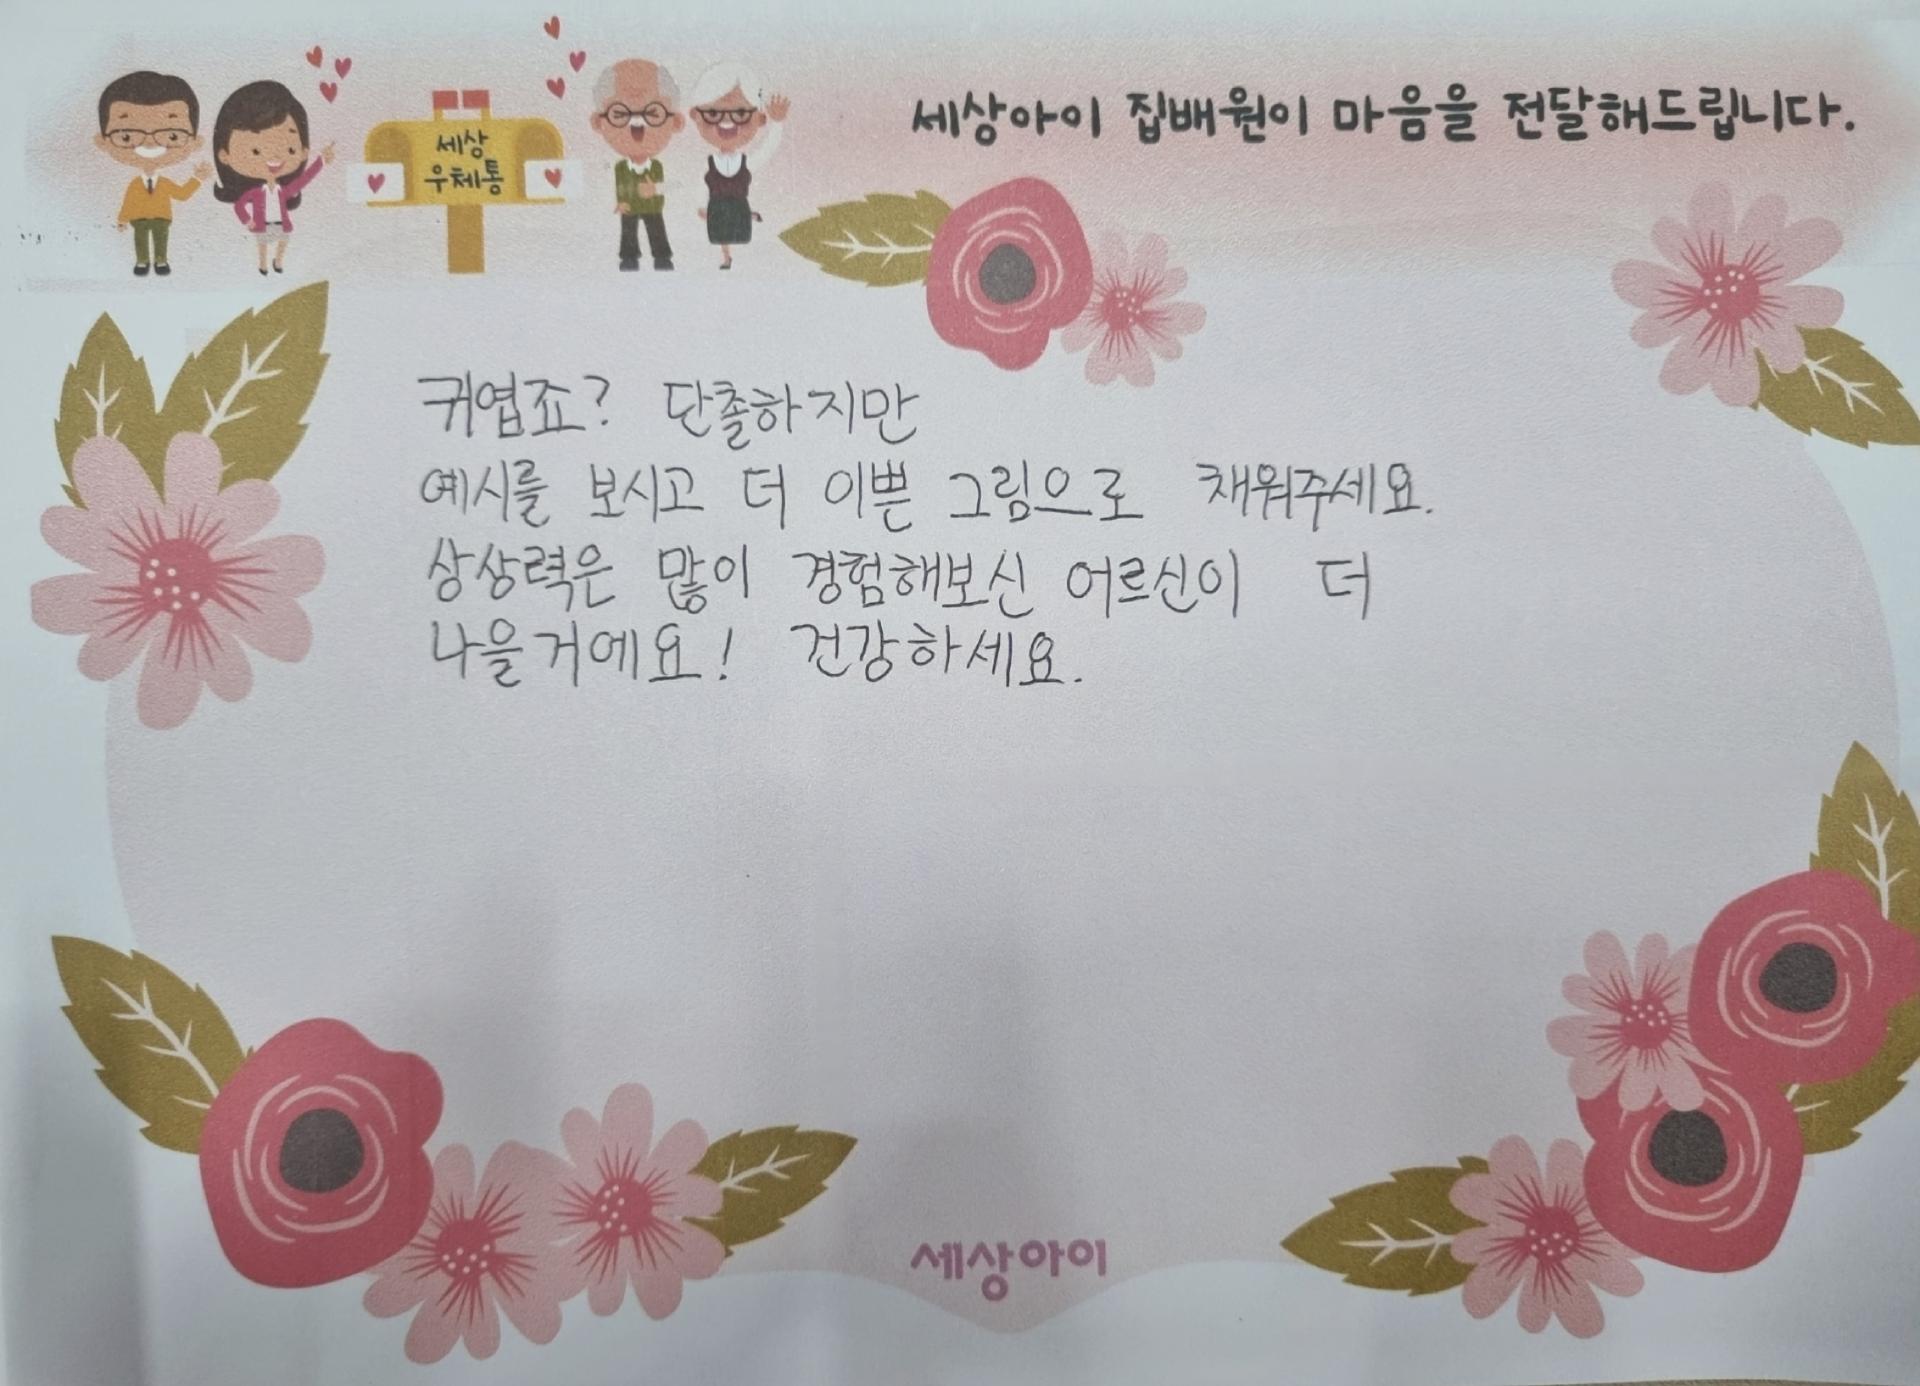 세상아이 집배원이 마음을 전달해드립니다.
세상
우체통
귀엽죠? 단촐하지만
예시를 보시고 더 이쁜 그림으로 채워주세요.
상상력은 많이 경험해보신 어르신이 더
나을거에요! 건강하세요.
세상아이